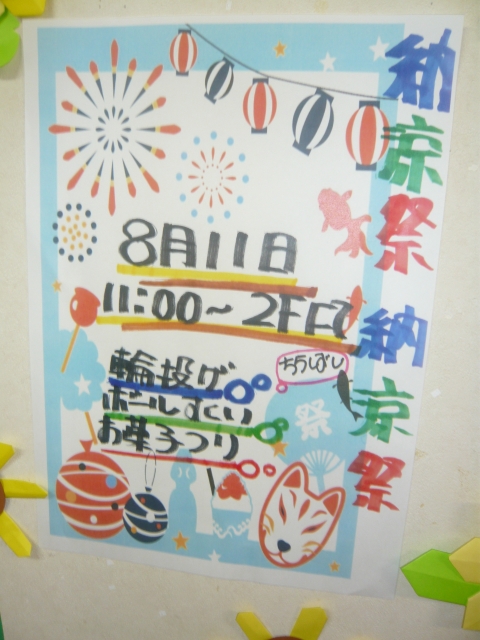 納涼祭 納涼祭
8月11日
11:00～ 2Fにて
ちらし
輪投げ
ボールすくい
お菓子つり
祭